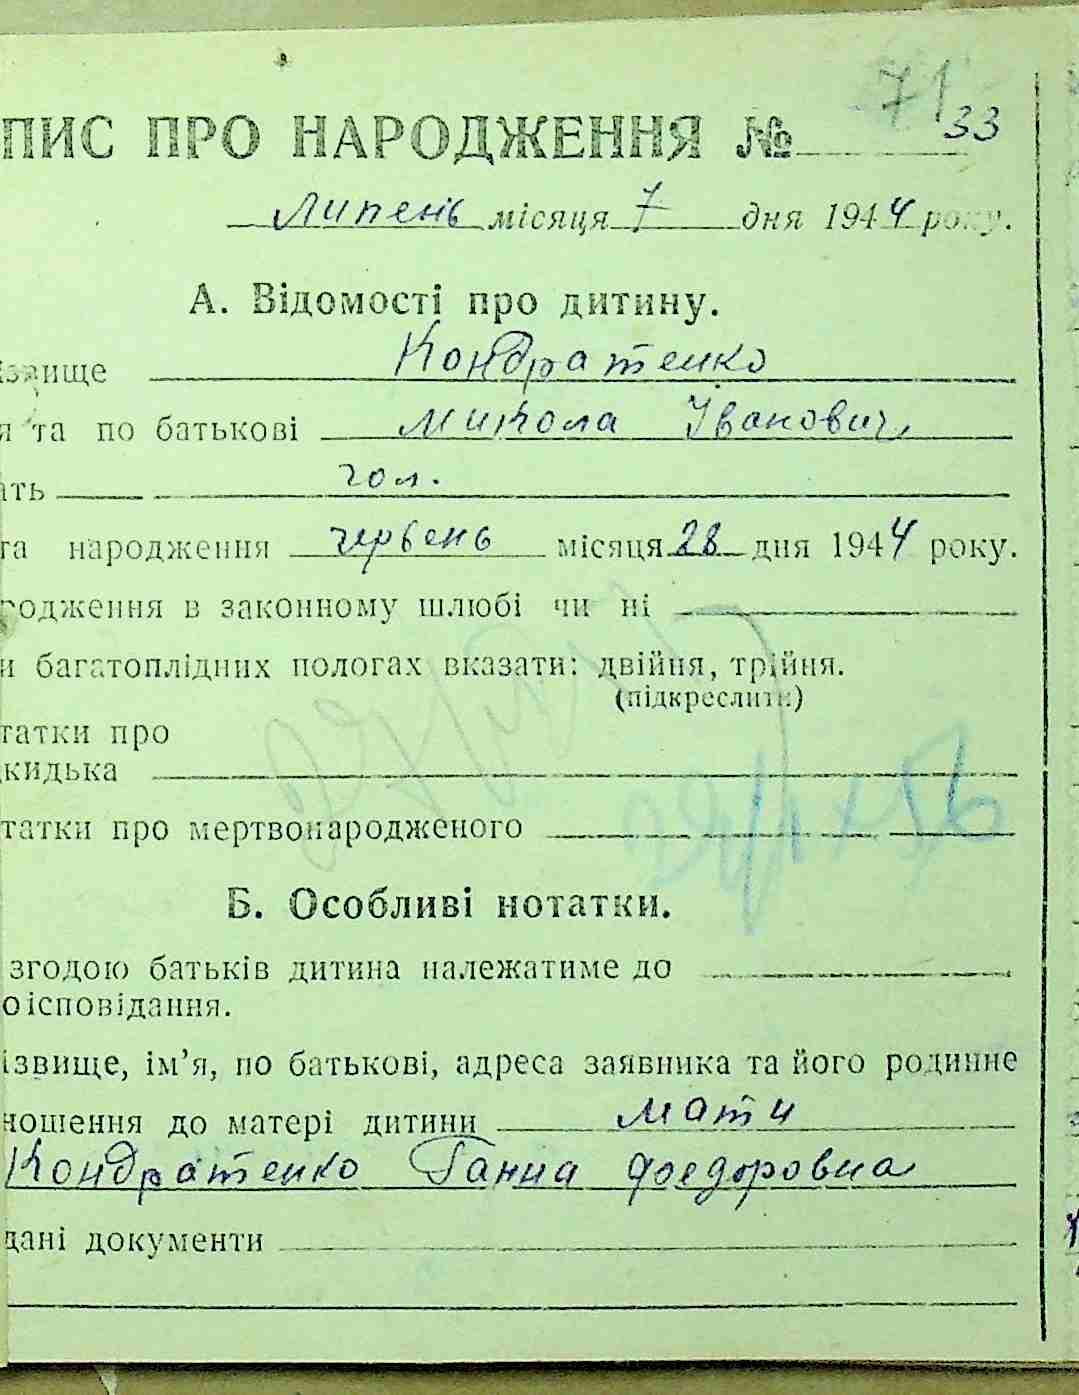 71
ПИС ПРО НАРОДЖЕННЯ № 33
Липень місяця 7 дня 1944 року.
А. Відомості про дитину.
ізвище Кондратенко
я та по батькові Микола Іванович
ать чол.
та народження червень місяця 28 дня 1944 року.
родження в законному шлюбі чи ні
и багатоплідних пологах вказати: двійня, трійня.
(підкреслити)
татки про
кидька
татки про мертвонародженого
Б. Особливі нотатки.
згодою батьків дитина належатиме до
оісповідання.
ізвище, ім’я, по батькові, адреса заявника та його родинне
ношення до матері дитини мати
Кондратенко Ганна Федоровна
дані документи